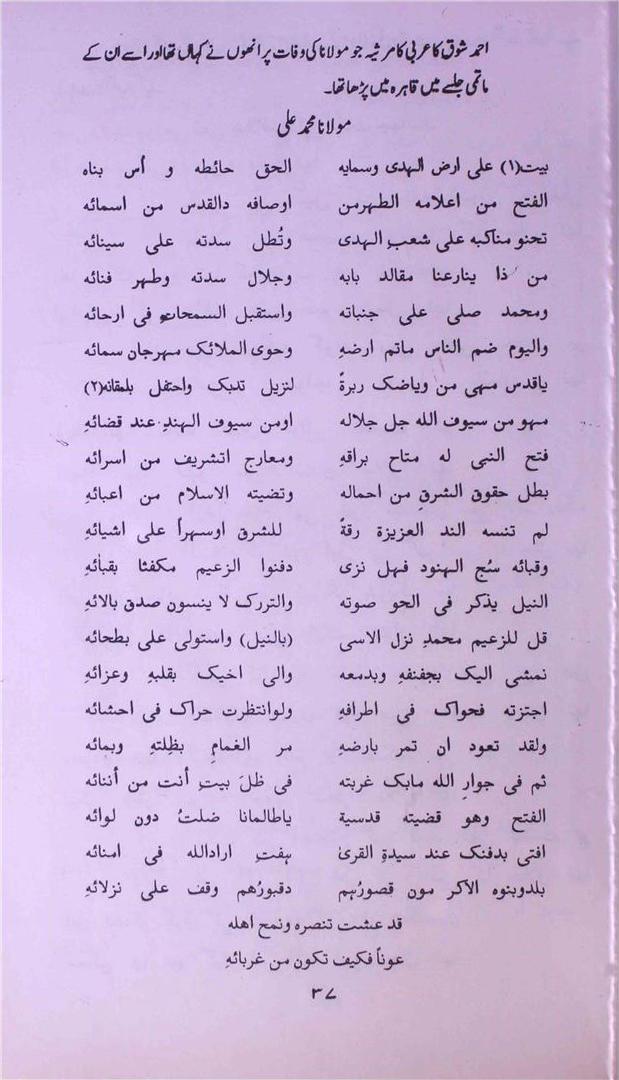 احمد شوق کا عربی کا مرثیہ جو مولانا کی وفات پر انھوں نے کہاں تھا اور اسے ان کے
ماتمی جلسے میں قاہرہ میں پڑھا تھا۔
مولانا محمد علی
بیت(۱) علی ارض الہدی وسمایه الحق حائطه و اُس بناه
الفتح من اعلامه الطہرمن اوصافه دالقدس من اسمائه
تحنو مناکبه علی شعبِ الہدی وتُطل سدته علی سینائه
من ذا ینارعنا مقالد بابه وجلال سدته وطہر فنائه
ومحمد صلی علی جنباته واستقبل السمحات فی ارحائه
والیوم ضم الناس ماتم ارضهِ وحوی الملائک مہرجان سمائه
یاقدس مہی من ویاضک ربرةً لنزیل تدبک واحتفل بلمقانه(۲)
مہو من سیوف الله جل جلاله اومن سیوف الہندِ عند قضائهِ
فتح النبی له متاح براقهِ ومعارج اتشریف من اسرائه
بطل حقوق الشرقِ من احماله وتضیته الاسلام من اعبائه
لم تنسه الند العزیزة رقةً للشرق اوسہراً علی اشیائهِ
وقبائه سُج الہنود فہل نزی دفنوا الزعیم مکفنا بقبائهِ
النیل یذکر فی الحو صوته والتررک لا ینسون صدق بالائهِ
قل للزعیم محمدِ نزل الاسی (بالنیل) واستولی علی بطحائهِ
نمشی الیک بجفنفهِ وبدمعه والی اخیک بقلبهِ وعزائهِ
اجتزته فحواک فی اطرافهِ ولوانتظرت حراک فی احشائه
ولقد تعود ان تمر بارضهِ مر الغمامِ بظِلتهِ وبمائه
ثم فی جوارِ الله مابک غربته فی ظلَ بیتِ أنت من أننائه
الفتح وهو قضیته قدسیة یاطالمانا ضلتُ دون لوائه
افتی بدفنک عند سیدةِ القریٰ ہفتِ ارادالله فی امنائه
بلدوبنوه الاکر مون قصورُہم دقبورُهم وقف علی نزلائهِ
قد عشت تنصره ونمح اهله
عوناً فکیف تکون من غربائهِ
۳۷